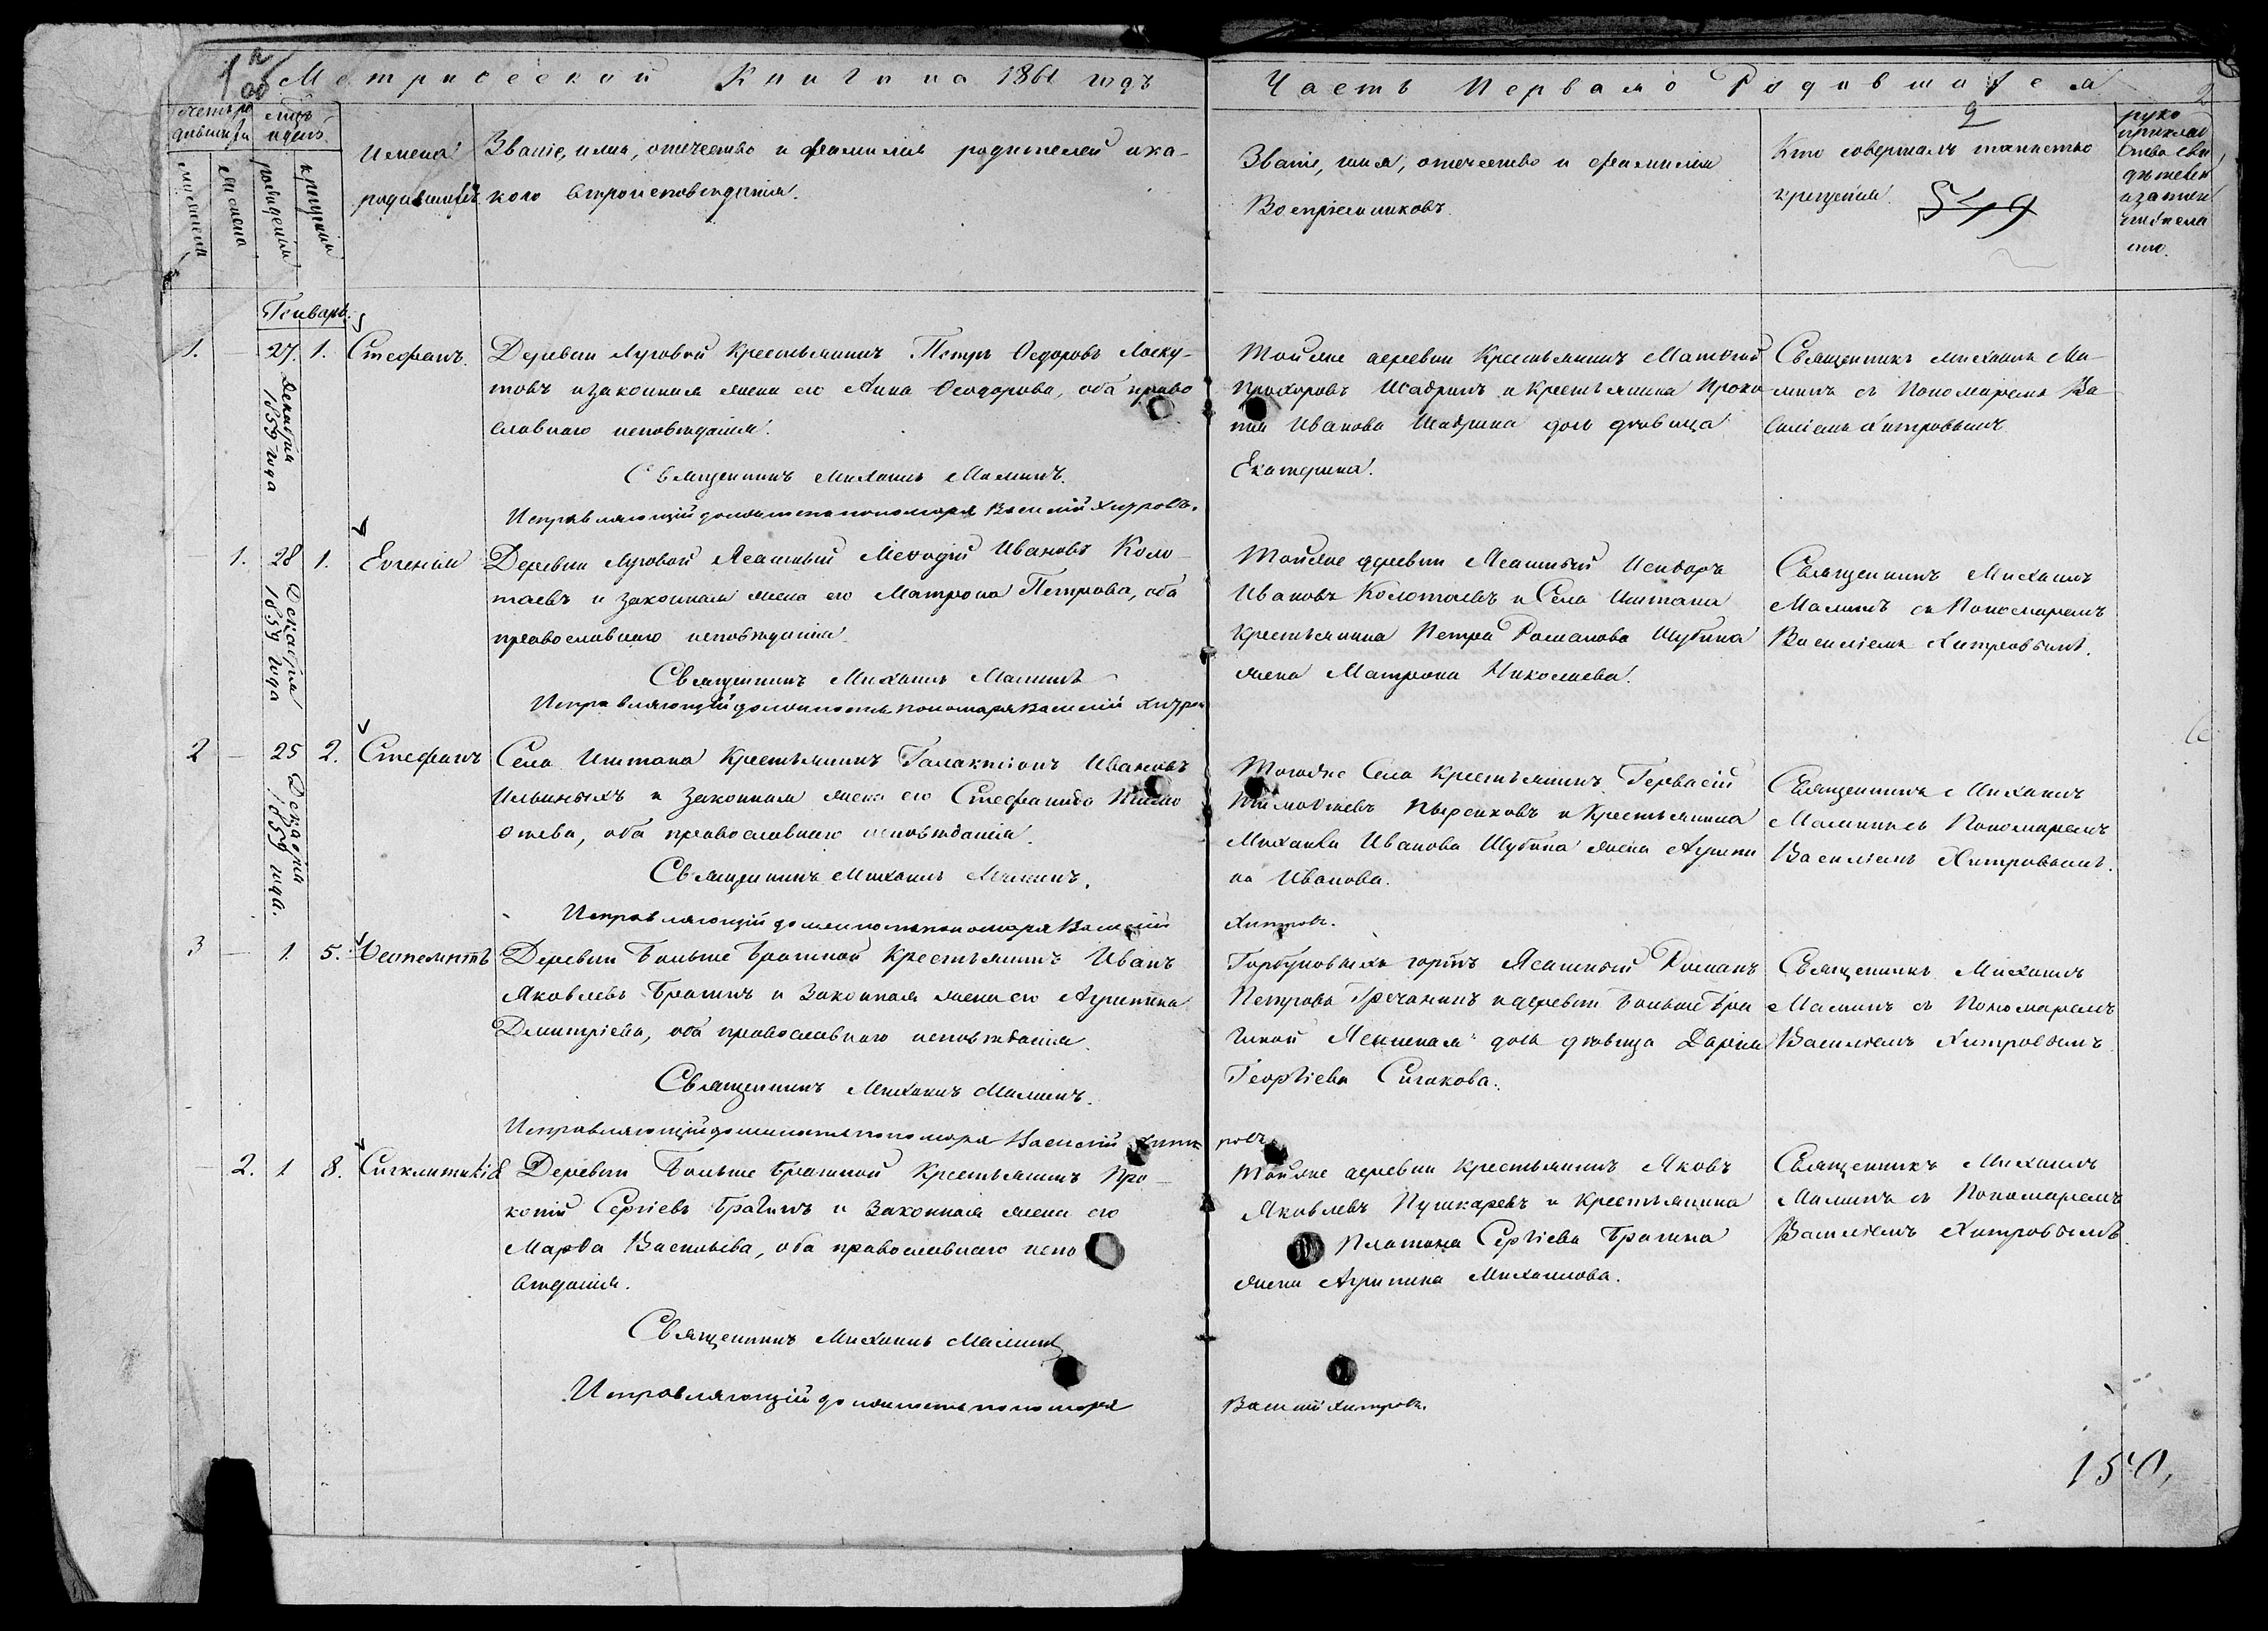 Метрической Книги на 1860 годъ
Часть Перваяо Родившихся
2
Счетъ ро
дившихся
мѣсяцъ
и день
Имена
родившихъ
Званіе, имя, отчество и фамилія родителей и ка-
кого вѣроисповѣданія.
Званіе, имя, отчество и фамилія
Воспріемниковъ.
Кто совершалъ таинство
крещенія.
руко
приклад
ство сви
дѣтелей
о записи
мужеска
женска
рожденія
крещенія
Генварь.
1. — 27. 1. Стефанъ.
Декабря
1859 года
Деревни Луговой Крестьянинъ Петръ Ѳедоровъ Лоску-
товъ и законная жена его Анна Ѳеодорова, оба право
славнаго исповѣданія.
Священникъ Михаилъ Малинъ.
Исправляющій должность пономаря Василій Хитровъ.
Тойже деревни Крестьянинъ Матѳей
Прохоровъ Шадринъ и Крестьянина Проко
пія Иванова Шадрина дочь дѣвица
Екатерина.
Священникъ Михаилъ Ма-
линъ съ Пономаремъ Ва-
силіемъ Хитровымъ
— 1. 28 1. Евгенія
Декабря
1859 года
Деревни Луговой Ясашный Меѳодій Ивановъ Коло-
таевъ и законная жена его Матрона Петрова, оба
православнаго исповѣданія.
Священникъ Михаилъ Малинъ
Исправляющій должность пономаря Василій Хитров
Тойже деревни Ясашный Исидоръ
Ивановъ Колотаевъ и Села Иштана
крестьянина Петра Романова Шубина
жена Матрона Николаева.
Священникъ Михаилъ
Малинъ съ Пономаремъ
Василіемъ Хитровымъ.
2 — 25 2. Стефанъ
Декабря
1859 года.
Села Иштана Крестьянинъ Галактіонъ Ивановъ
Ильиныхъ и законная жена его Стефанида Тимо
ѳеева, оба православнаго исповѣданія.
Священникъ Михаилъ Малинъ.
Исправляющій должность пономаря Василій
Хитровъ.
Тогоже Села Крестьянинъ Гервасій
Тимоѳеевъ Пырсиковъ и Крестьянина
Михаила Иванова Шубина жена Агрипи
на Иванова.
Священникъ Михаилъ
Малинъ съ Пономаремъ
Василіемъ Хитровымъ.
3 — 1 5. Ѳеопемптъ
Деревни Больше Брагиной Крестьянинъ Иванъ
Яковлевъ Брагинъ и законная жена его Агрипина
Дмитріева, оба православнаго исповѣданія.
Священникъ Михаилъ Малинъ.
Исправляющій должность пономаря Василій Хит
ровъ
Горбуновыхъ юртъ Ясашный Романъ
Петровъ Гречанинъ и деревни Больше Бра
гиной дочь дѣвица Дарія
Георгіева Сигакова.
Священникъ Михаилъ
Малинъ съ Пономаремъ
Василіемъ Хитровымъ
— 2. 1 8. Сигклитикія
Деревни Больше Брагиной Крестьянинъ Про-
копій Сергіевъ Брагинъ и законная жена его
Марѳа Васильева, оба православнаго испо
вѣданія.
Священникъ Михаилъ Малинъ
Исправляющій должность пономаря
Василій Хитровъ.
Тойже деревни крестьянинъ Яковъ
Яковлевъ Пушкаревъ и крестьянина
Платона Сергіева Брагина
жена Агрипина Михаилова.
Священникъ Михаилъ
Малинъ съ Пономаремъ
Василіемъ Хитровымъ.
150,